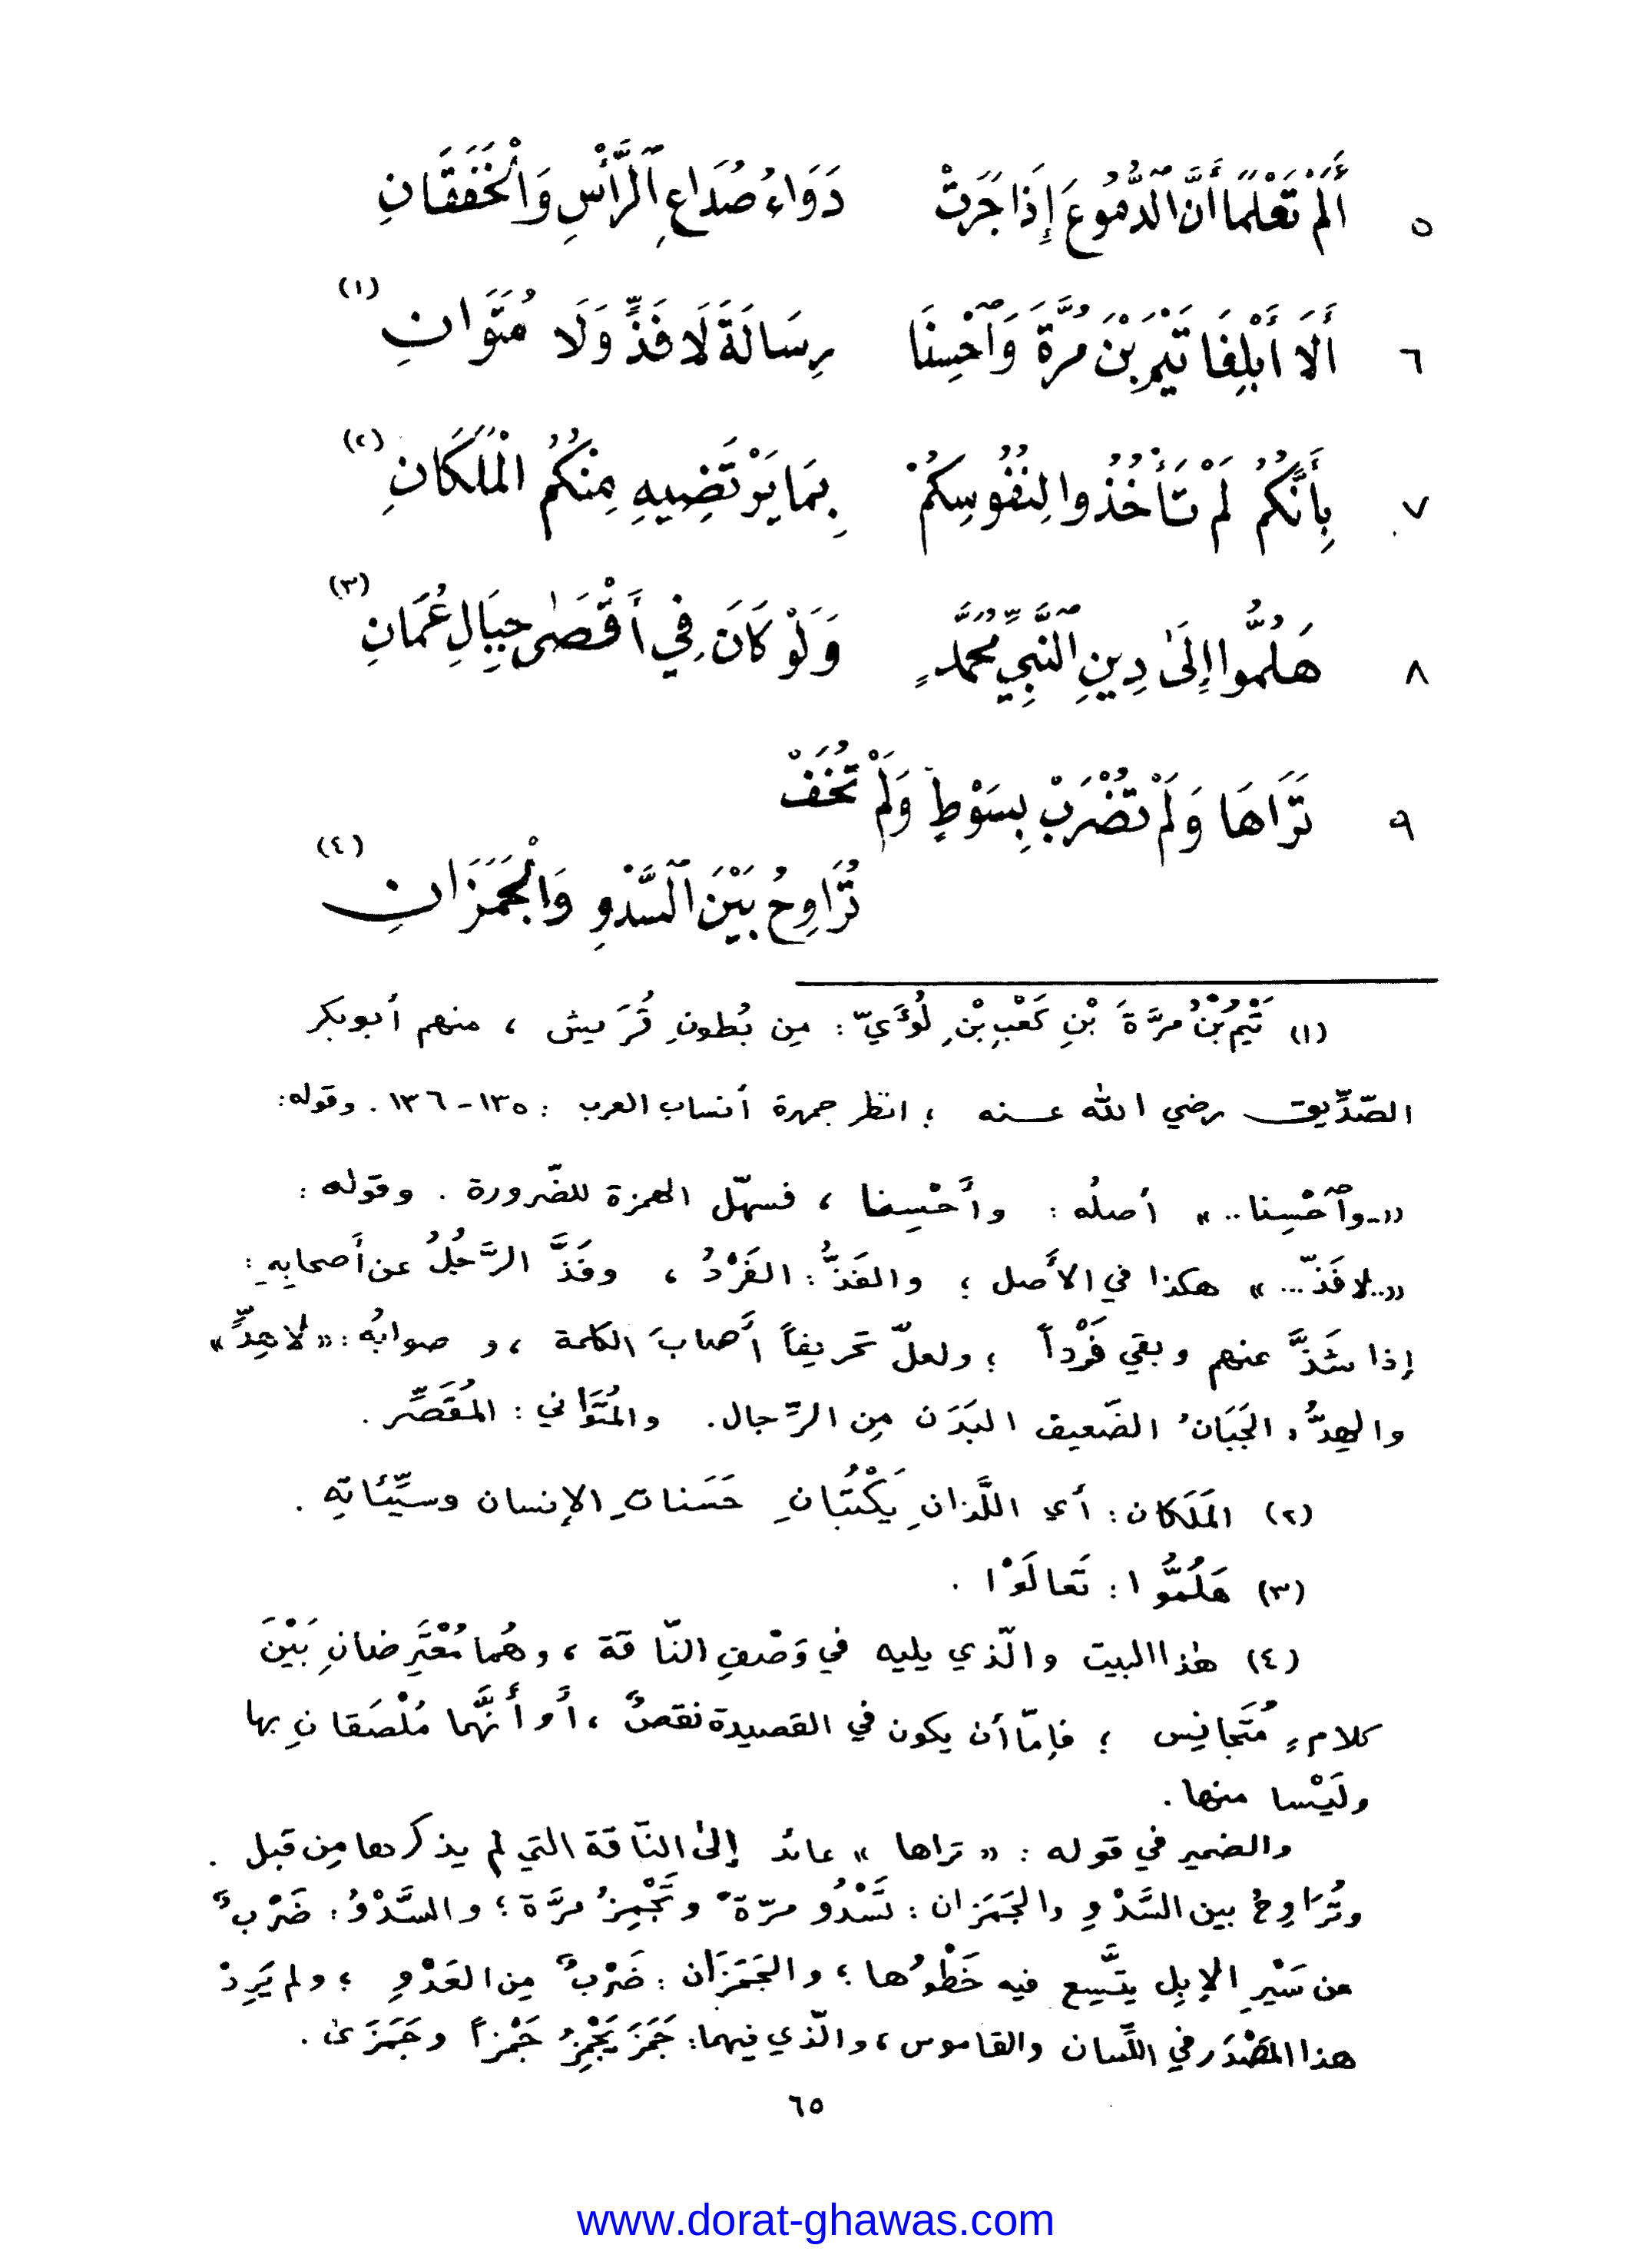 ٥ أَلَمْ تَعْلَمَا أَنَّ ٱلدُّمُوعَ إِذَا جَرَتْ دَوَاءُ صُدَاعِ ٱلرَّأْسِ وَٱلْخَفَقَانِ
٦ أَلَا أَبْلِغَا تَيْمَ بْنَ مُرَّةَ وَٱحْسِنَا رِسَالَةَ لَا فَذٍّ وَلَا مُتَوَانِ (١)
٧ بِأَنَّكُمُ لَمْ تَأْخُذُوا لِنُفُوسِكُمْ بِمَا يَرْتَضِيهِ مِنْكُمُ الْمَلَكَانِ (٢)
٨ هَلُمُّوا إِلَىٰ دِينِ ٱلنَّبِيِّ مُحَمَّدٍ وَلَوْ كَانَ فِي أَقْصَىٰ جِبَالِ عُمَانِ (٣)
٩ تَرَاهَا وَلَمْ تُضْرَبْ بِسَوْطٍ وَلَمْ تُخَفْ
تُرَاوِحُ بَيْنَ ٱلسَّدْوِ وَٱلْجَمَزَانِ (٤)
(١) تَيْمُ بْنُ مرَّةَ بْنِ كَعْبِ بْنِ لُؤَيّ : مِن بُطونِ قُرَيش ، منهم أبو بكر
الصّدِّيق رضي الله عنه ؛ انظر جمهرة أنساب العرب : ١٣٥-١٣٦ . وقوله :
«..وٱحْسِنا..» أصلُه : وأَحْسِنا ، فسهّل الهمزة للضّرورة . وقوله :
«..لا فَذّ...» هكذا في الأَصل ؛ والفَذُّ : الفَرْدُ ، وفَذَّ الرَّجُلُ عن أَصحابِهِ :
إذا شَذَّ عنهم وبقي فَرْداً ؛ ولعلّ تحريفاً أَصابَ الكلمة ، و صوابُه : «لا هِدٍّ»
والهِدُّ : الجَبَانُ الضّعيف البَدَن مِن الرِّجال . والمُتَوَاني : المُقَصِّر .
(٢) المَلَكان : أي اللَّذانِ يَكْتُبَانِ حَسَناتِ الإنسان وسيِّئاتِه .
(٣) هَلُمُّوا : تَعالَوْا .
(٤) هٰذا البيت والّذي يليه في وَصْفِ النّاقة ، وهُما مُعْتَرِضانِ بَيْنَ
كلامٍ مُتَجانِس ؛ فإمّا أن يكون في القصيدة نقصٌ ، أَو أَنَّهما مُلْصَقانِ بها
ولَيْسا منها .
والضمير في قوله : «تراها» عائد إلىٰ النّاقة التي لم يذكرها مِن قبل .
وتُرَاوِحُ بين السَّدْوِ والجَمَزان : تَسْدُو مرّةً وتَجْمِزُ مرَّة ؛ والسَّدْوُ : ضَرْبٌ
من سَيْرِ الإبِلِ يتَّسِع فيه خَطْوُها ؛ والجَمَزَان : ضَرْبٌ مِن العَدْوِ ؛ ولم يَرِدْ
هذا المَصْدَر في اللِّسان والقاموس ، والّذي فيهما : جَمَزَ يَجْمِزُ جَمْزاً وجَمَزَىٰ .
٦٥
www.dorat-ghawas.com